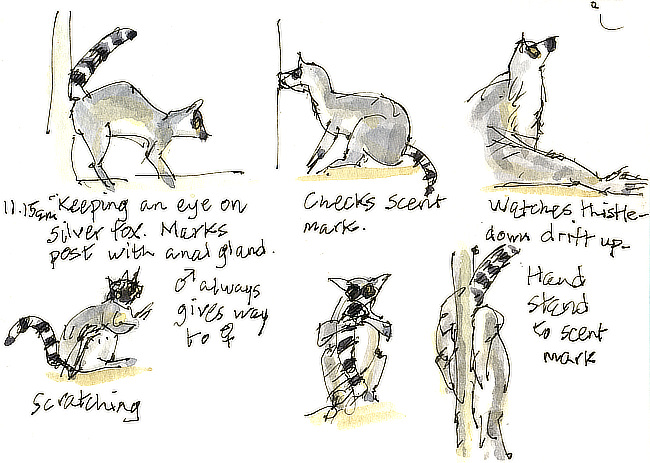 11.15am Keeping an eye on
silver fox. Marks
post with anal gland.
Checks scent
mark.
Watches thistle-
down drift up.
♂ always
gives way
to ♀
Hand
stand
to scent
mark
Scratching